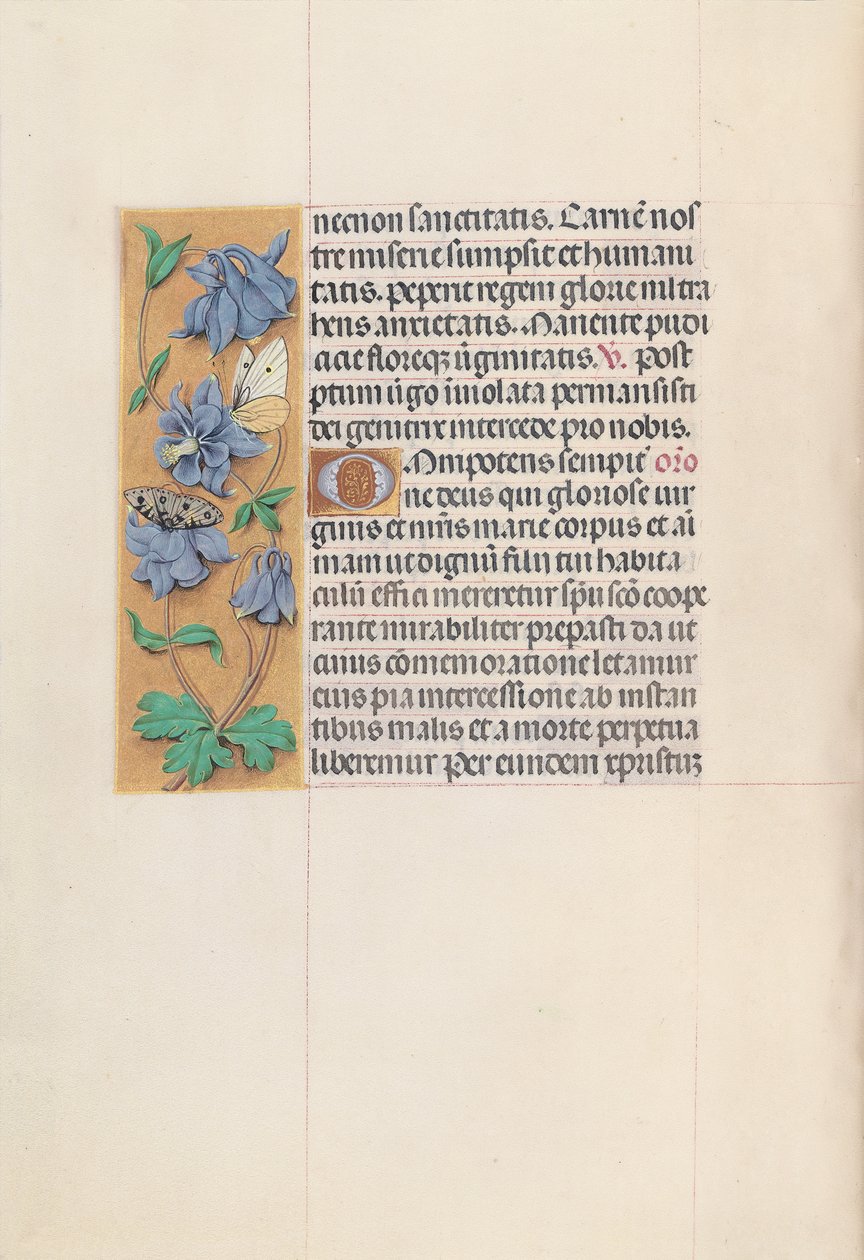 necnon sanctitatis. Carnē nos
tre miserie sumpsit et humani
tatis. peperit regem glorie nil tra
hens anxietatis. Manente pudi
cicie floreqꝫ ūginitatis. V̄. Post
ptum ūgo īuiolata permansisti
dei genitrix intercede pro nobis.
Omnipotens sempit̄ orō
ne deus qui gloriose uir
ginis et mr̄is marie corpus et aī
mam ut dignū filii tui habita
culū effici mereretur sp̄u scō coope
rante mirabiliter prepasti da ut
cuius cōmemoratione letamur
eius pia intercessione ab instan
tibus malis et a morte perpetua
liberemur Per eundem xpristuꝫ